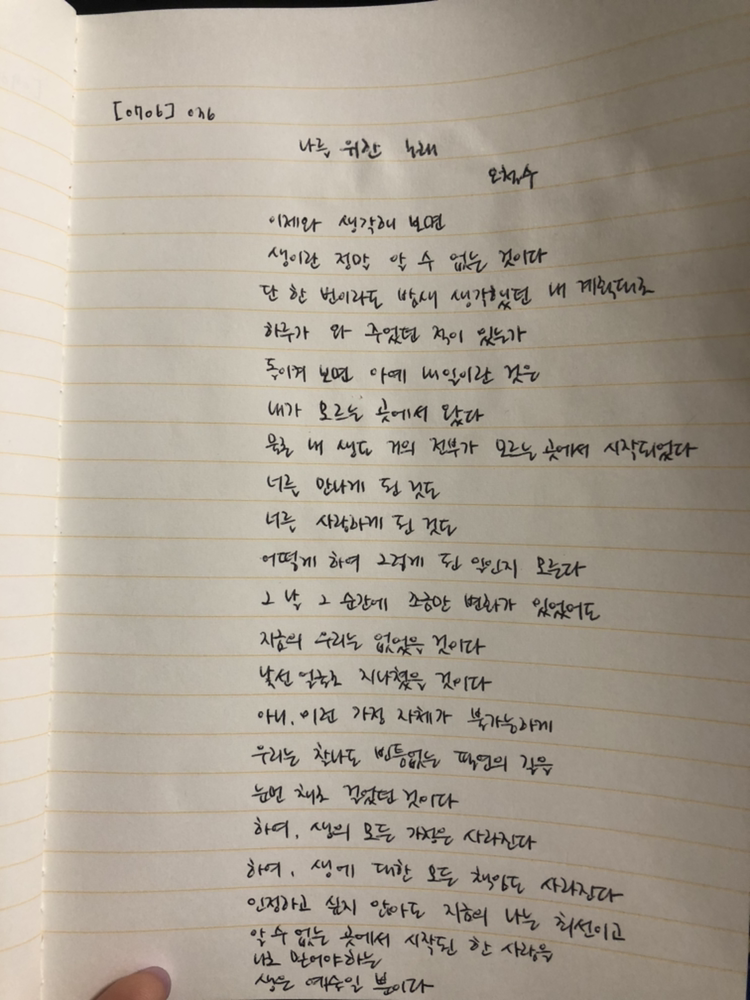 [0706] 036
나를 위한 노래
오철수
이제와 생각해 보면
생이란 정말 알 수 없는 것이다
단 한 번이라도 밤새 생각했던 내 계획대로
하루가 와 주었던 적이 있는가
돌이켜 보면 아예 내일이란 것은
내가 모르는 곳에서 왔다
물론 내 생도 거의 전부가 모르는 곳에서 시작되었다
너를 만나게 된 것도
너를 사랑하게 된 것도
어떻게 하여 그렇게 된 일인지 모른다
그 날 그 순간에 조금만 변화가 있었어도
지금의 우리는 없었을 것이다
낯선 얼굴로 지나쳤을 것이다
아니, 이런 가정 자체가 불가능하게
우리는 찰나도 빈틈없는 필연의 길을
눈먼 채로 걸었던 것이다
하여, 생의 모든 가정은 사라진다
하여, 생에 대한 모든 책임도 사라진다
인정하고 싶지 않아도 지금의 나는 최선이고
알 수 없는 곳에서 시작된 한 사랑을
나로 믿어야 하는
생은 예술일 뿐이다